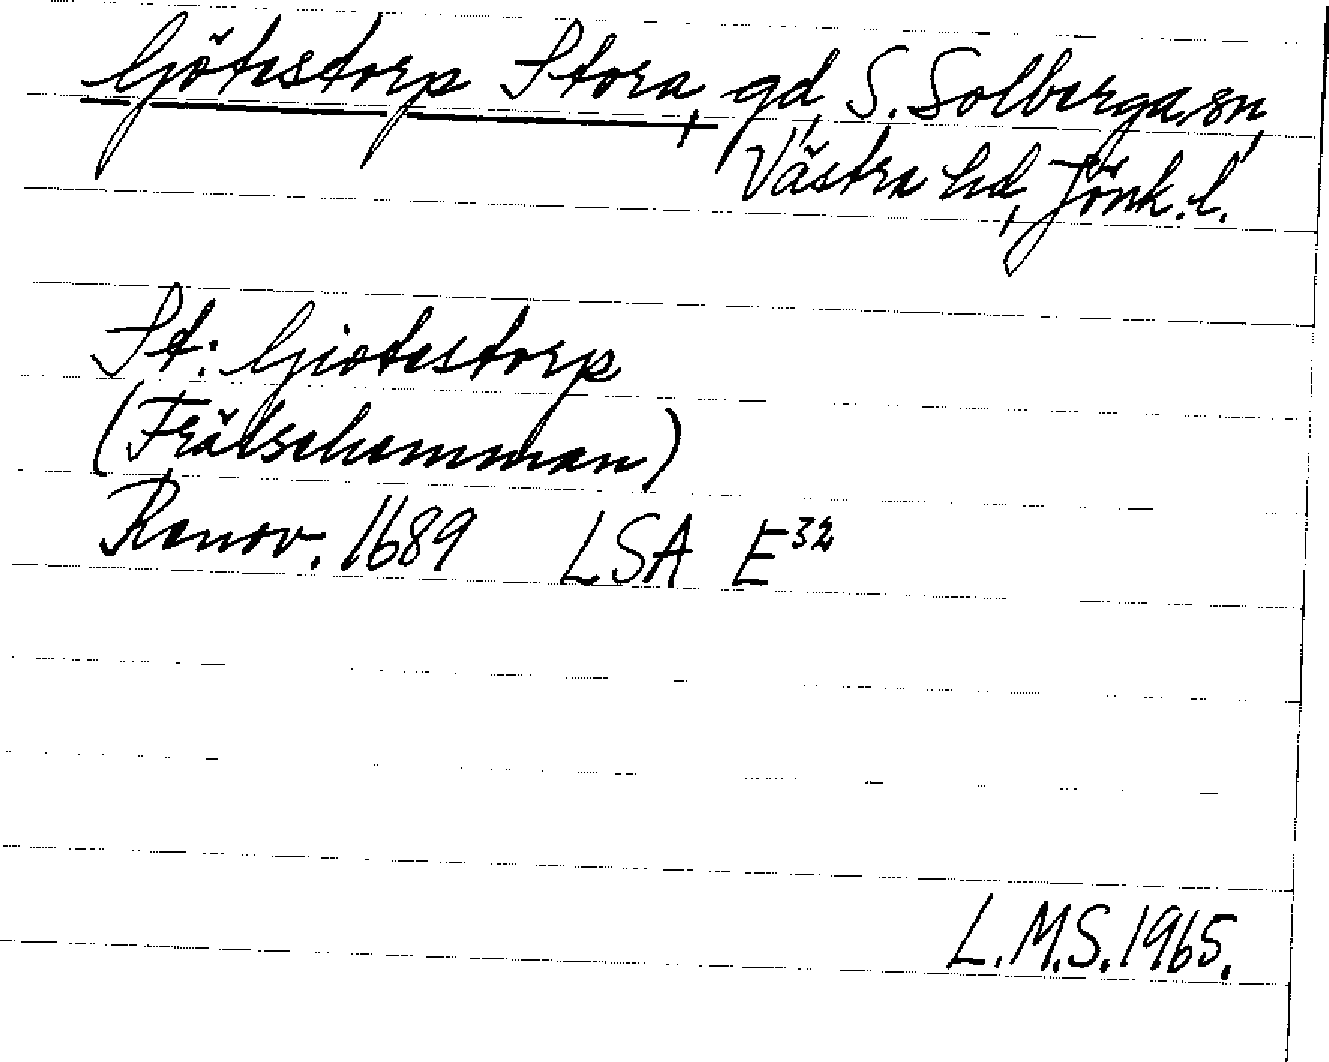 Götestorp Stora, gd, S. Solberga sn,
Västra hd, Jönk. l.
St: Giötestorp
(Frälsehemman)
Renov. 1689 LSA E³²
L.M.S. 1965.